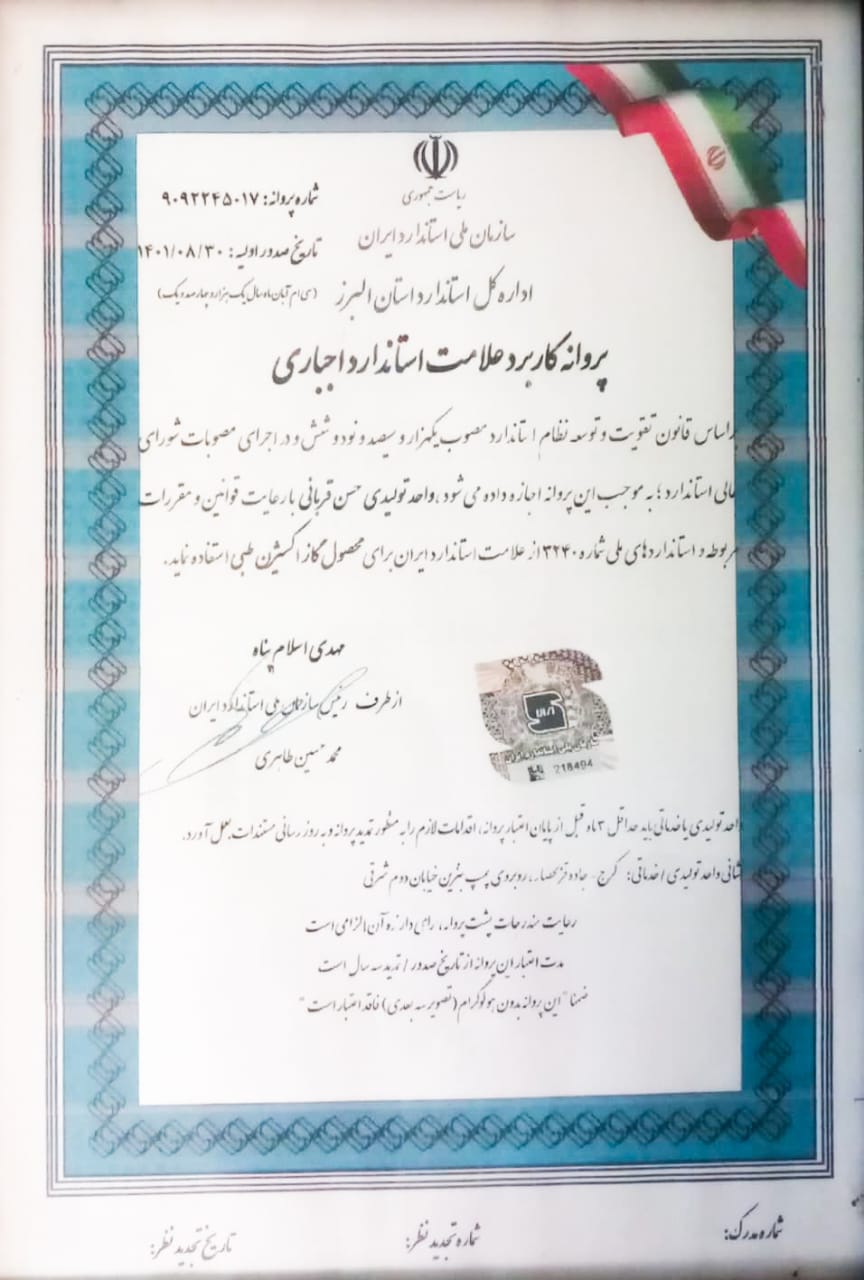 ریاست جمهوری
سازمان ملی استاندارد ایران
اداره کل استاندارد استان البرز
شماره پروانه: ۹۰۹۲۲۴۵۰۱۷
تاریخ صدور اولیه: ۱۴۰۱/۰۸/۳۰
(سی ام آبان ماه سال یک هزار و چهارصد و یک)
پروانه کاربرد علامت استاندارد اجباری
براساس قانون تقویت و توسعه نظام استاندارد مصوب یکهزار و سیصد و نود و شش و در اجرای مصوبات شورای
عالی استاندارد؛ به موجب این پروانه اجازه داده می شود، واحد تولیدی حسن قربانی با رعایت قوانین و مقررات
مربوطه و استانداردهای ملی شماره ۳۲۴۰ از علامت استاندارد ایران برای محصول گاز اکسیژن طبی استفاده نماید.
مهدی اسلام پناه
از طرف رئیس سازمان ملی استاندارد ایران
محمد حسین طاهری
218494
واحد تولیدی یا خدماتی باید حداقل ۳ ماه قبل از پایان اعتبار پروانه، اقدامات لازم را به منظور تمدید پروانه و به روز رسانی مستندات بعمل آورد.
نشانی واحد تولیدی / خدماتی: کرج - جاده قزلحصار، روبروی پمپ بنزین خیابان دوم شرقی
رعایت مندرجات پشت پروانه، برای دارنده آن الزامی است
مدت اعتبار این پروانه از تاریخ صدور / تمدید سه سال است
ضمنا "این پروانه بدون هولوگرام (تصویر سه بعدی) فاقد اعتبار است"
شماره مدرک:
شماره تجدید نظر:
تاریخ تجدید نظر: